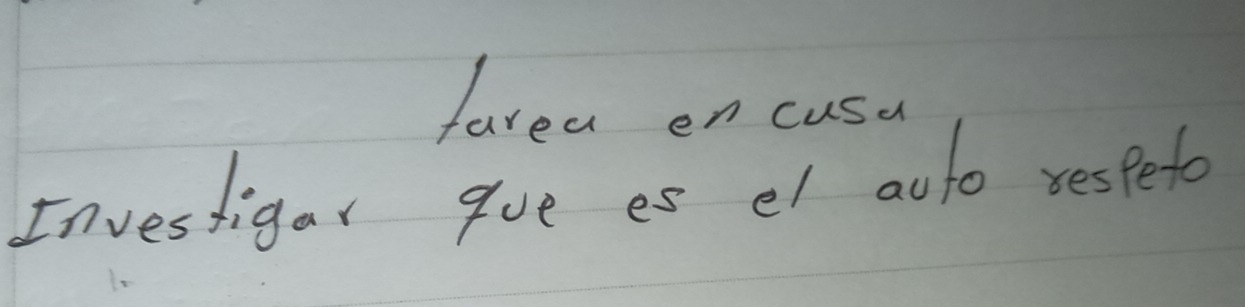 tarea en casa
Investigar que es el auto respeto